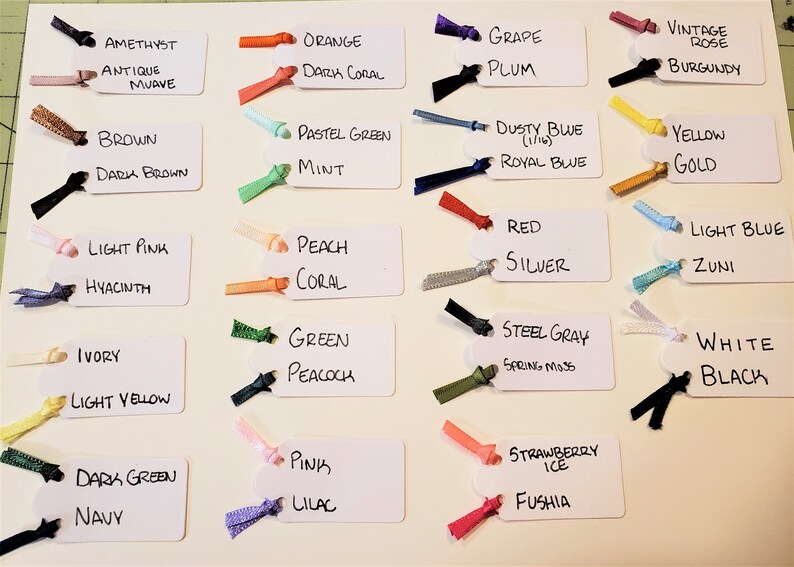 AMETHYST
ANTIQUE
MUAVE
ORANGE
DARK CORAL
GRAPE
PLUM
VINTAGE
ROSE
BURGUNDY
BROWN
DARK BROWN
PASTEL GREEN
MINT
DUSTY BLUE
(1/16)
ROYAL BLUE
YELLOW
GOLD
LIGHT PINK
HYACINTH
PEACH
CORAL
RED
SILVER
LIGHT BLUE
ZUNI
IVORY
LIGHT YELLOW
GREEN
PEACOCK
STEEL GRAY
SPRING MOSS
WHITE
BLACK
DARK GREEN
NAVY
PINK
LILAC
STRAWBERRY
ICE
FUSHIA